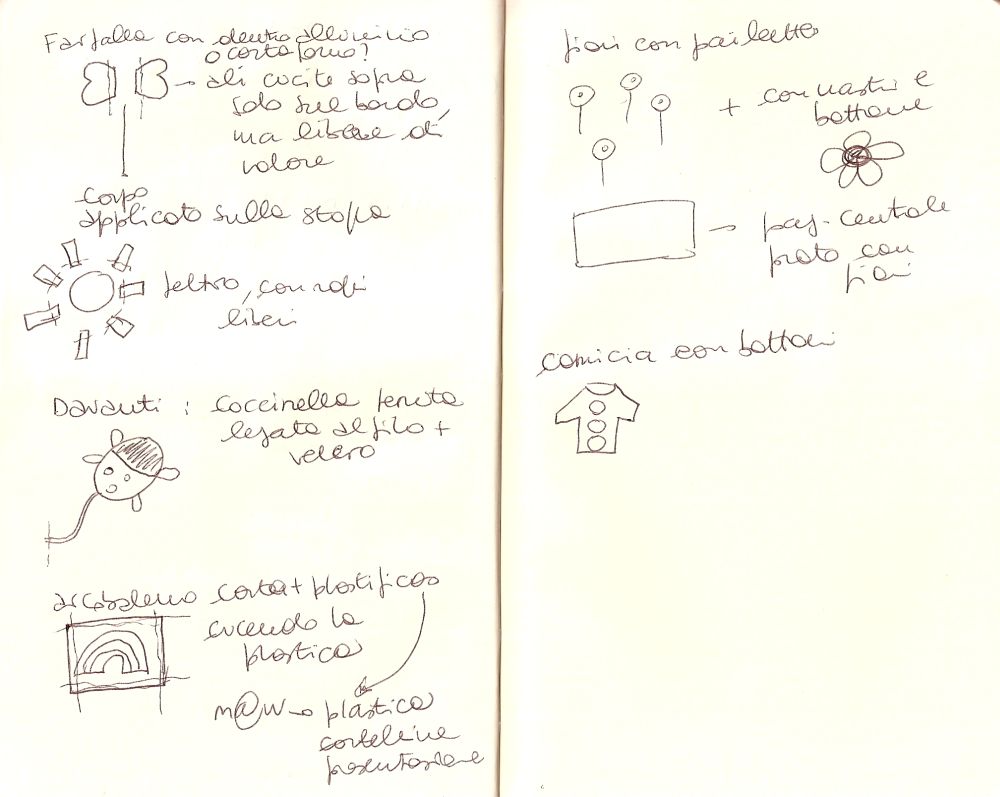 Farfalla con dentro alluminio
o carta forno?
→ ali cucite sopra
solo sul bordo,
ma libere di
volare
corpo
applicato sulla stoffa
feltro, con rotoli
liberi
Davanti : coccinella tenuta
legata al filo +
velcro
arcobaleno carta + plastifico
cucendo la
plastica
m@w → plastica
cartelline
presentazione
fiori con paillette
+ con nastri e
bottone
→ pag. centrale
prato con
fiori
camicia con bottoni